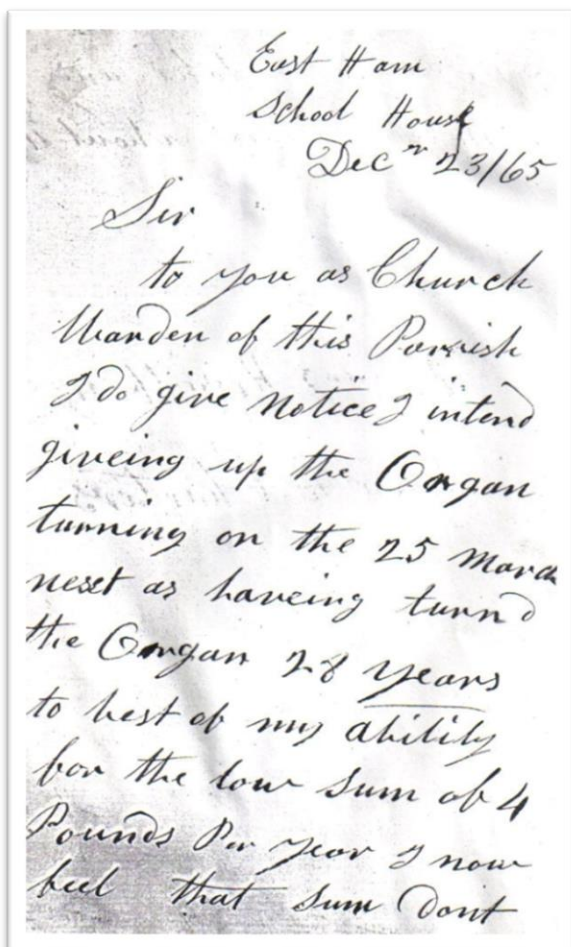 East Ham
School House
Decr 23/65
Sir
to you as Church
Warden of this Parrish
I do give Notice I intend
giveing up the Organ
turning on the 25 March
next as haveing turnd
the Organ 28 years
to best of my ability
for the low sum of 4
Pounds Per year I now
feel that sum dont